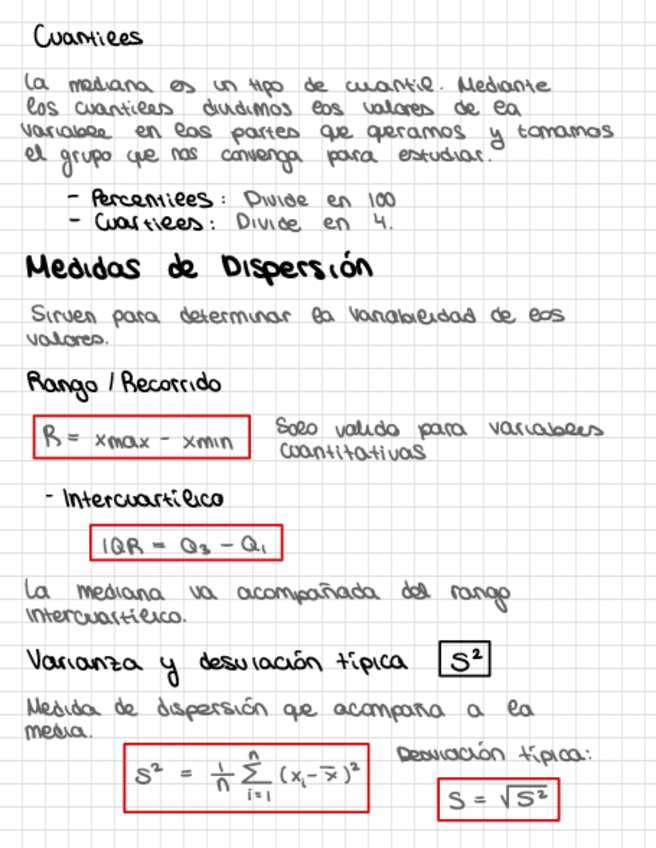 Cuantiles
La mediana es un tipo de cuantil. Mediante
los cuantiles dividimos los valores de la
variable en las partes que qeramos y tomamos
el grupo que nos convenga para estudiar.
- Percentiles: Divide en 100
- Cuartiles: Divide en 4.
Medidas de Dispersión
Sirven para determinar la variabilidad de los
valores.
Rango / Recorrido
R = xmax - xmin
Solo valido para variables
cuantitativas
- Intercuartílico
IQR = Q₃ - Q₁
La mediana va acompañada del rango
intercuartilico.
Varianza y desviación típica S²
Medida de dispersión qe acompaña a la
media.
S² = 1/n ∑ᵢ₌₁ⁿ (xᵢ - x̄)²
Desviación típica:
S = √S²